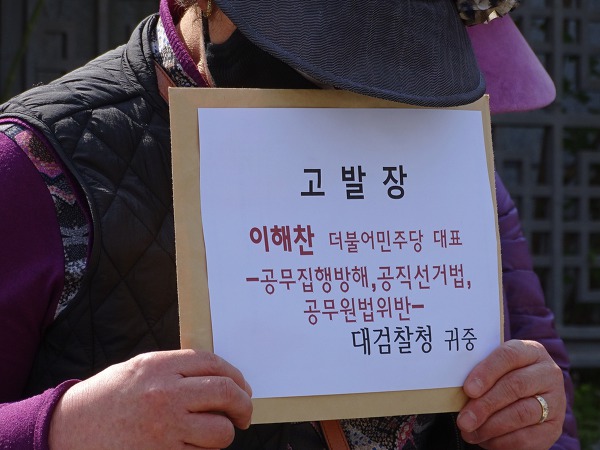 고 발 장
이해찬 더불어민주당 대표
-공무집행방해,공직선거법,
공무원법위반-
대검찰청 귀중